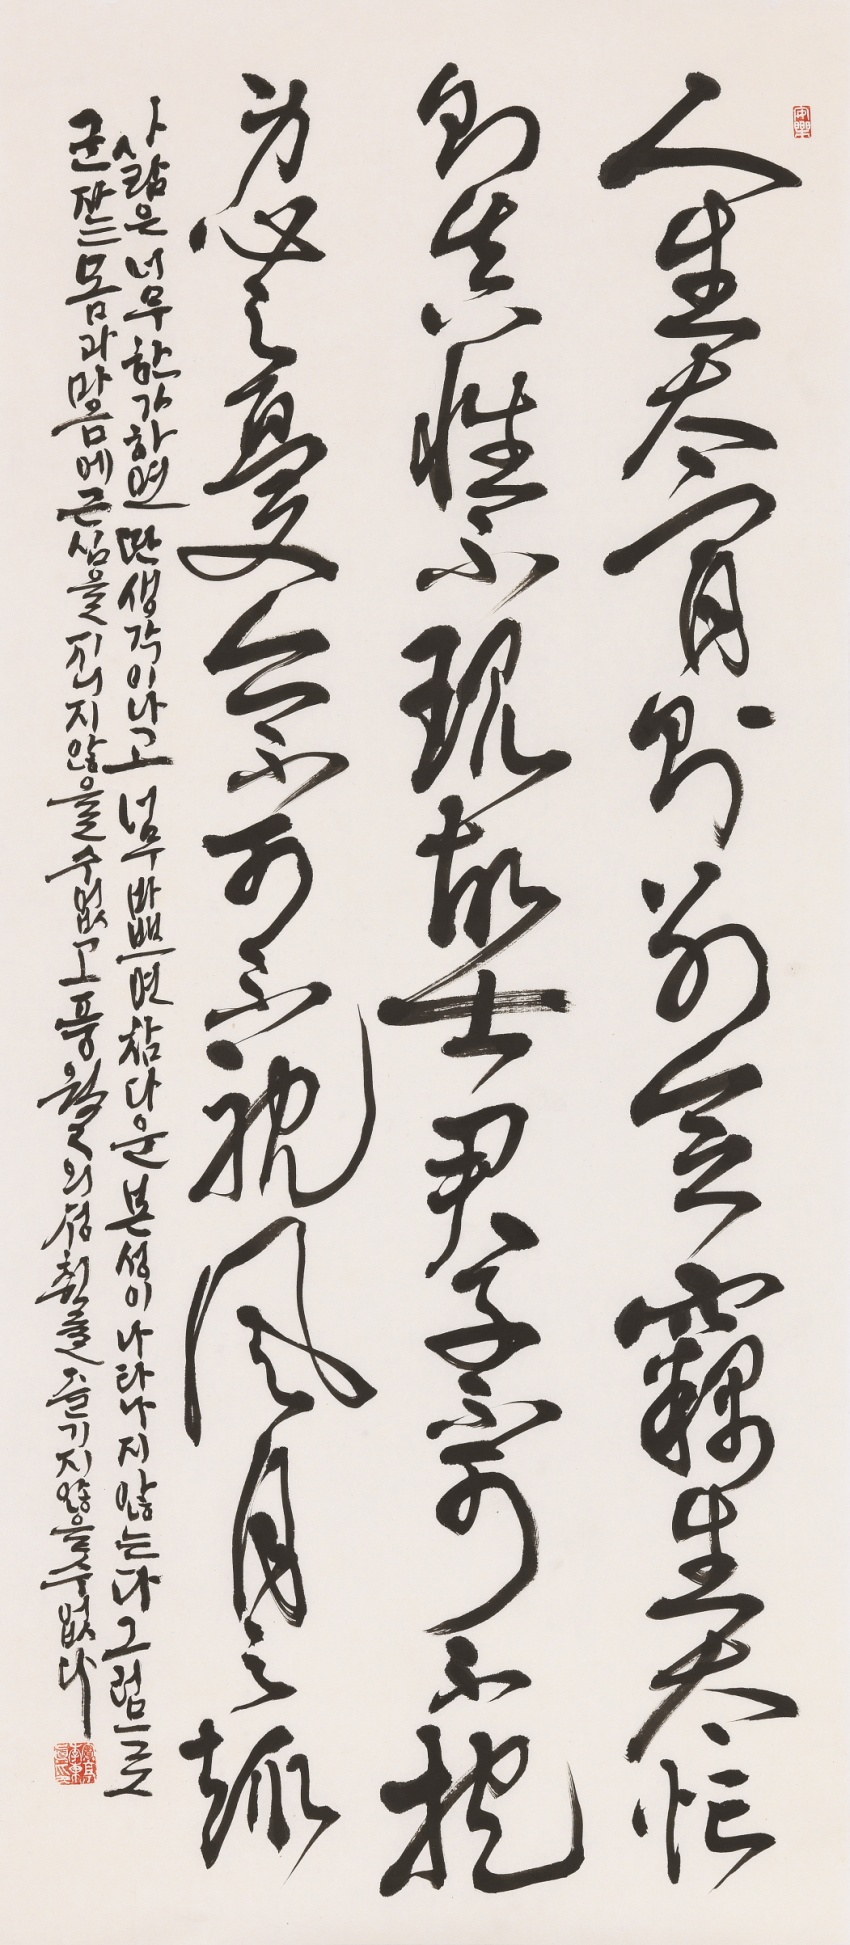 人生太閒則別念竊生太忙
則真性不現故士君子不可不抱
身心之憂亦不可不耽風月之趣
사람은 너무 한가하면 딴생각이 나고 너무 바쁘면 참다운 본성이 나타나지 않는다 그러므로
군자는 몸과 마음에 근심을 지니지 않을 수 없고 풍월의 정취를 즐기지 않을 수 없다